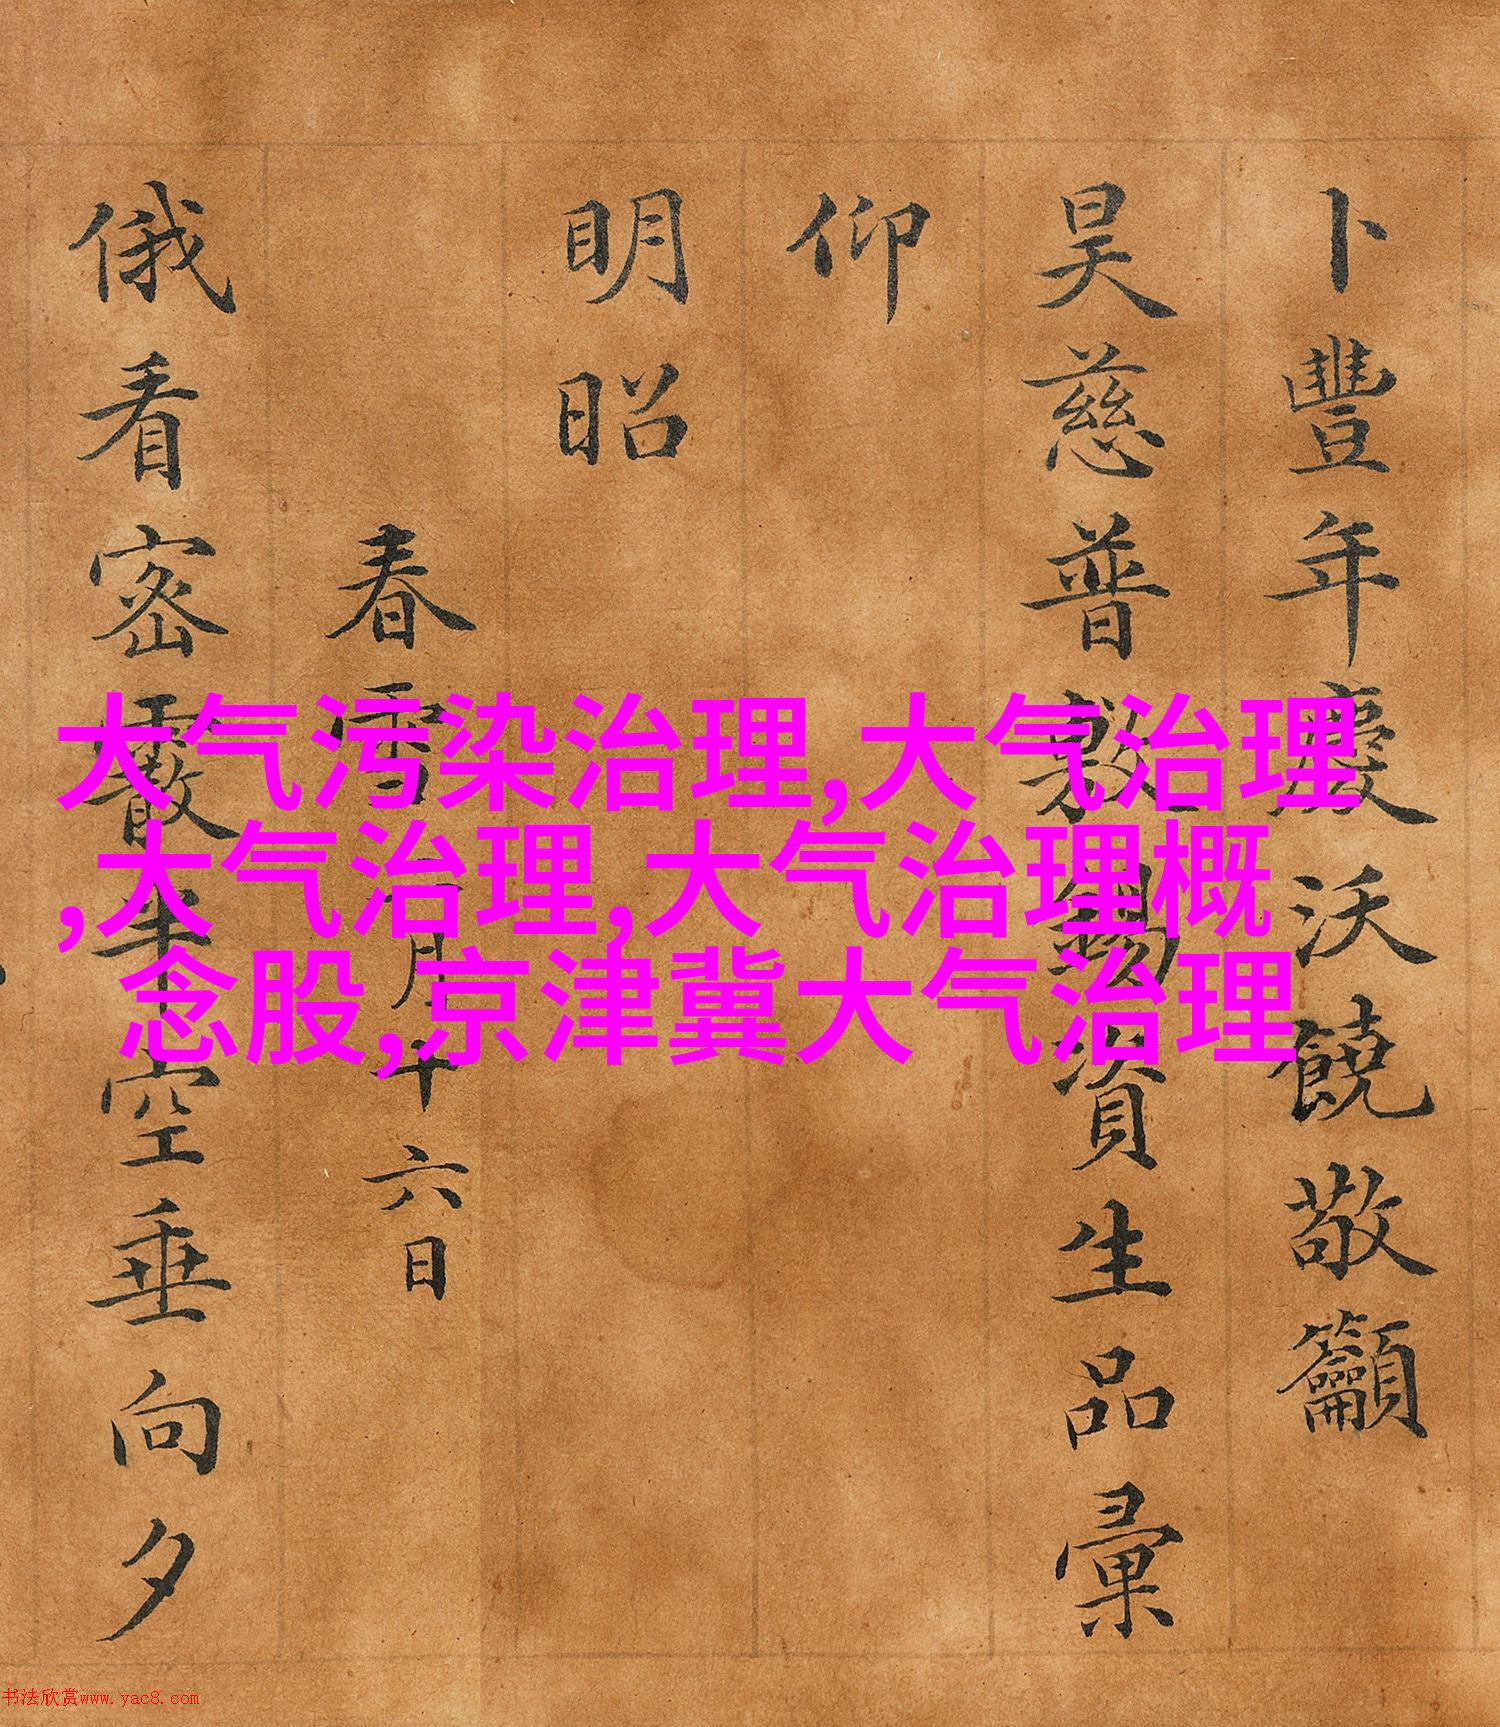 卜豐年慶沃饒敬籲
昊慈普敷錫資生品彙
仰
明昭
春雪 月 六日
俄看密霰半空垂向夕
大气污染治理,大气治理
,大气治理,大气治理概
念股,京津冀大气治理
书法欣赏www.yac8.com